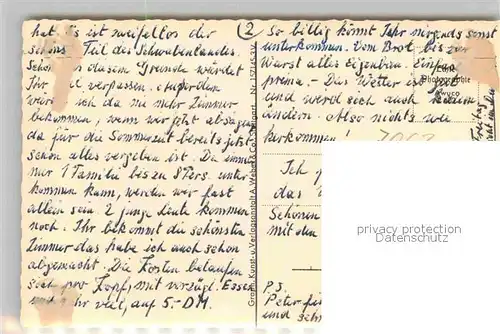 hat. Es ist zweifellos der
schönste Teil des Schwabenlandes.
Schon aus diesem Grunde würdet
Ihr viel verpassen. Außerdem
werde ich da nie mehr Zimmer
bekommen, wenn wir jetzt absagen
da für die Sommerzeit bereits jetzt
schon alles vergeben ist. Da immer
nur 1 Familie bis zu 8 Pers. unter
kommen kann, werden wir fast
allein sein. 2 junge Leute kommen
noch. Ihr bekommt die schönsten
Zimmer das habe ich auch schon
abgemacht. Die Kosten belaufen
sich pro Kopf, mit vorzügl. Essen
und sehr viel, auf 5.-DM.
2
So billig könnt Ihr nirgends sonst
unterkommen. Vom Brot bis zur
Wurst alles Eigenbau. Einfach
prima.- Das Wetter ist gut
und werd sich auch kaum
ändern. Also nichts wie
herkommen!
Ich f
das
Schönen
mit den
P.S.
Peter
und
Echte
Photographie
Graph. Kunst- u. Verlagsanstalt A. Weber & Co., Stuttgart
privacy protection
Datenschutz